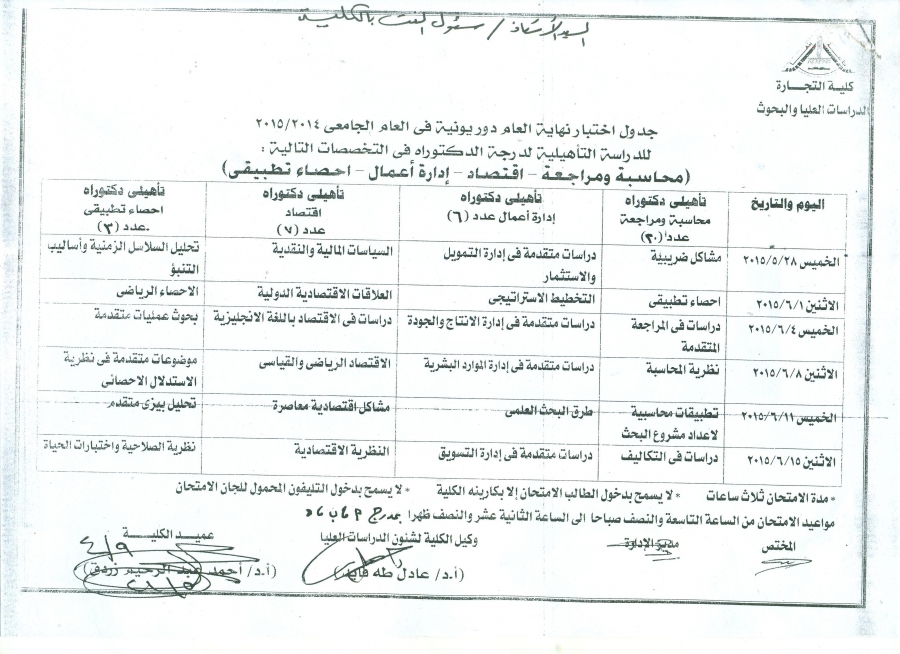 السيد الأستاذ / مسئول النت بالكلية
كلية التجارة
الدراسات العليا والبحوث
جدول اختبار نهاية العام دور يونية فى العام الجامعى ٢٠١٥/٢٠١٤
للدراسة التأهيلية لدرجة الدكتوراه فى التخصصات التالية :
(محاسبة ومراجعة - اقتصاد - إدارة أعمال - احصاء تطبيقى)
اليوم والتاريخ تأهيلى دكتوراه محاسبة ومراجعة عدد (٢٠) تأهيلى دكتوراه إدارة أعمال عدد (٦) تأهيلى دكتوراه اقتصاد عدد (٧) تأهيلى دكتوراه احصاء تطبيقى عدد (٣)
الخميس ٢٠١٥/٥/٢٨ مشاكل ضريبية دراسات متقدمة فى إدارة التمويل والاستثمار السياسات المالية والنقدية تحليل السلاسل الزمنية وأساليب التنبؤ
الاثنين ٢٠١٥/٦/١ احصاء تطبيقى التخطيط الاستراتيجى العلاقات الاقتصادية الدولية الاحصاء الرياضى
الخميس ٢٠١٥/٦/٤ دراسات فى المراجعة المتقدمة دراسات متقدمة فى إدارة الانتاج والجودة دراسات فى الاقتصاد باللغة الانجليزية بحوث عمليات متقدمة
الاثنين ٢٠١٥/٦/٨ نظرية المحاسبة دراسات متقدمة فى إدارة الموارد البشرية الاقتصاد الرياضى والقياسى موضوعات متقدمة فى نظرية الاستدلال الاحصائى
الخميس ٢٠١٥/٦/١١ تطبيقات محاسبية لاعداد مشروع البحث طرق البحث العلمى مشاكل اقتصادية معاصرة تحليل بيزى متقدم
الاثنين ٢٠١٥/٦/١٥ دراسات فى التكاليف دراسات متقدمة فى إدارة التسويق النظرية الاقتصادية نظرية الصلاحية واختبارات الحياة
* مدة الامتحان ثلاث ساعات * لا يسمح بدخول الطالب الامتحان إلا بكارينه الكلية * لا يسمح بدخول التليفون المحمول للجان الامتحان
مواعيد الامتحان من الساعة التاسعة والنصف صباحا الى الساعة الثانية عشر والنصف ظهرا بمدرج
المختص مدير الإدارة وكيل الكلية لشئون الدراسات العليا عميد الكلية
(أ.د/ عادل طه فايد) (أ.د/ أحمد عبد الرحيم زردق)